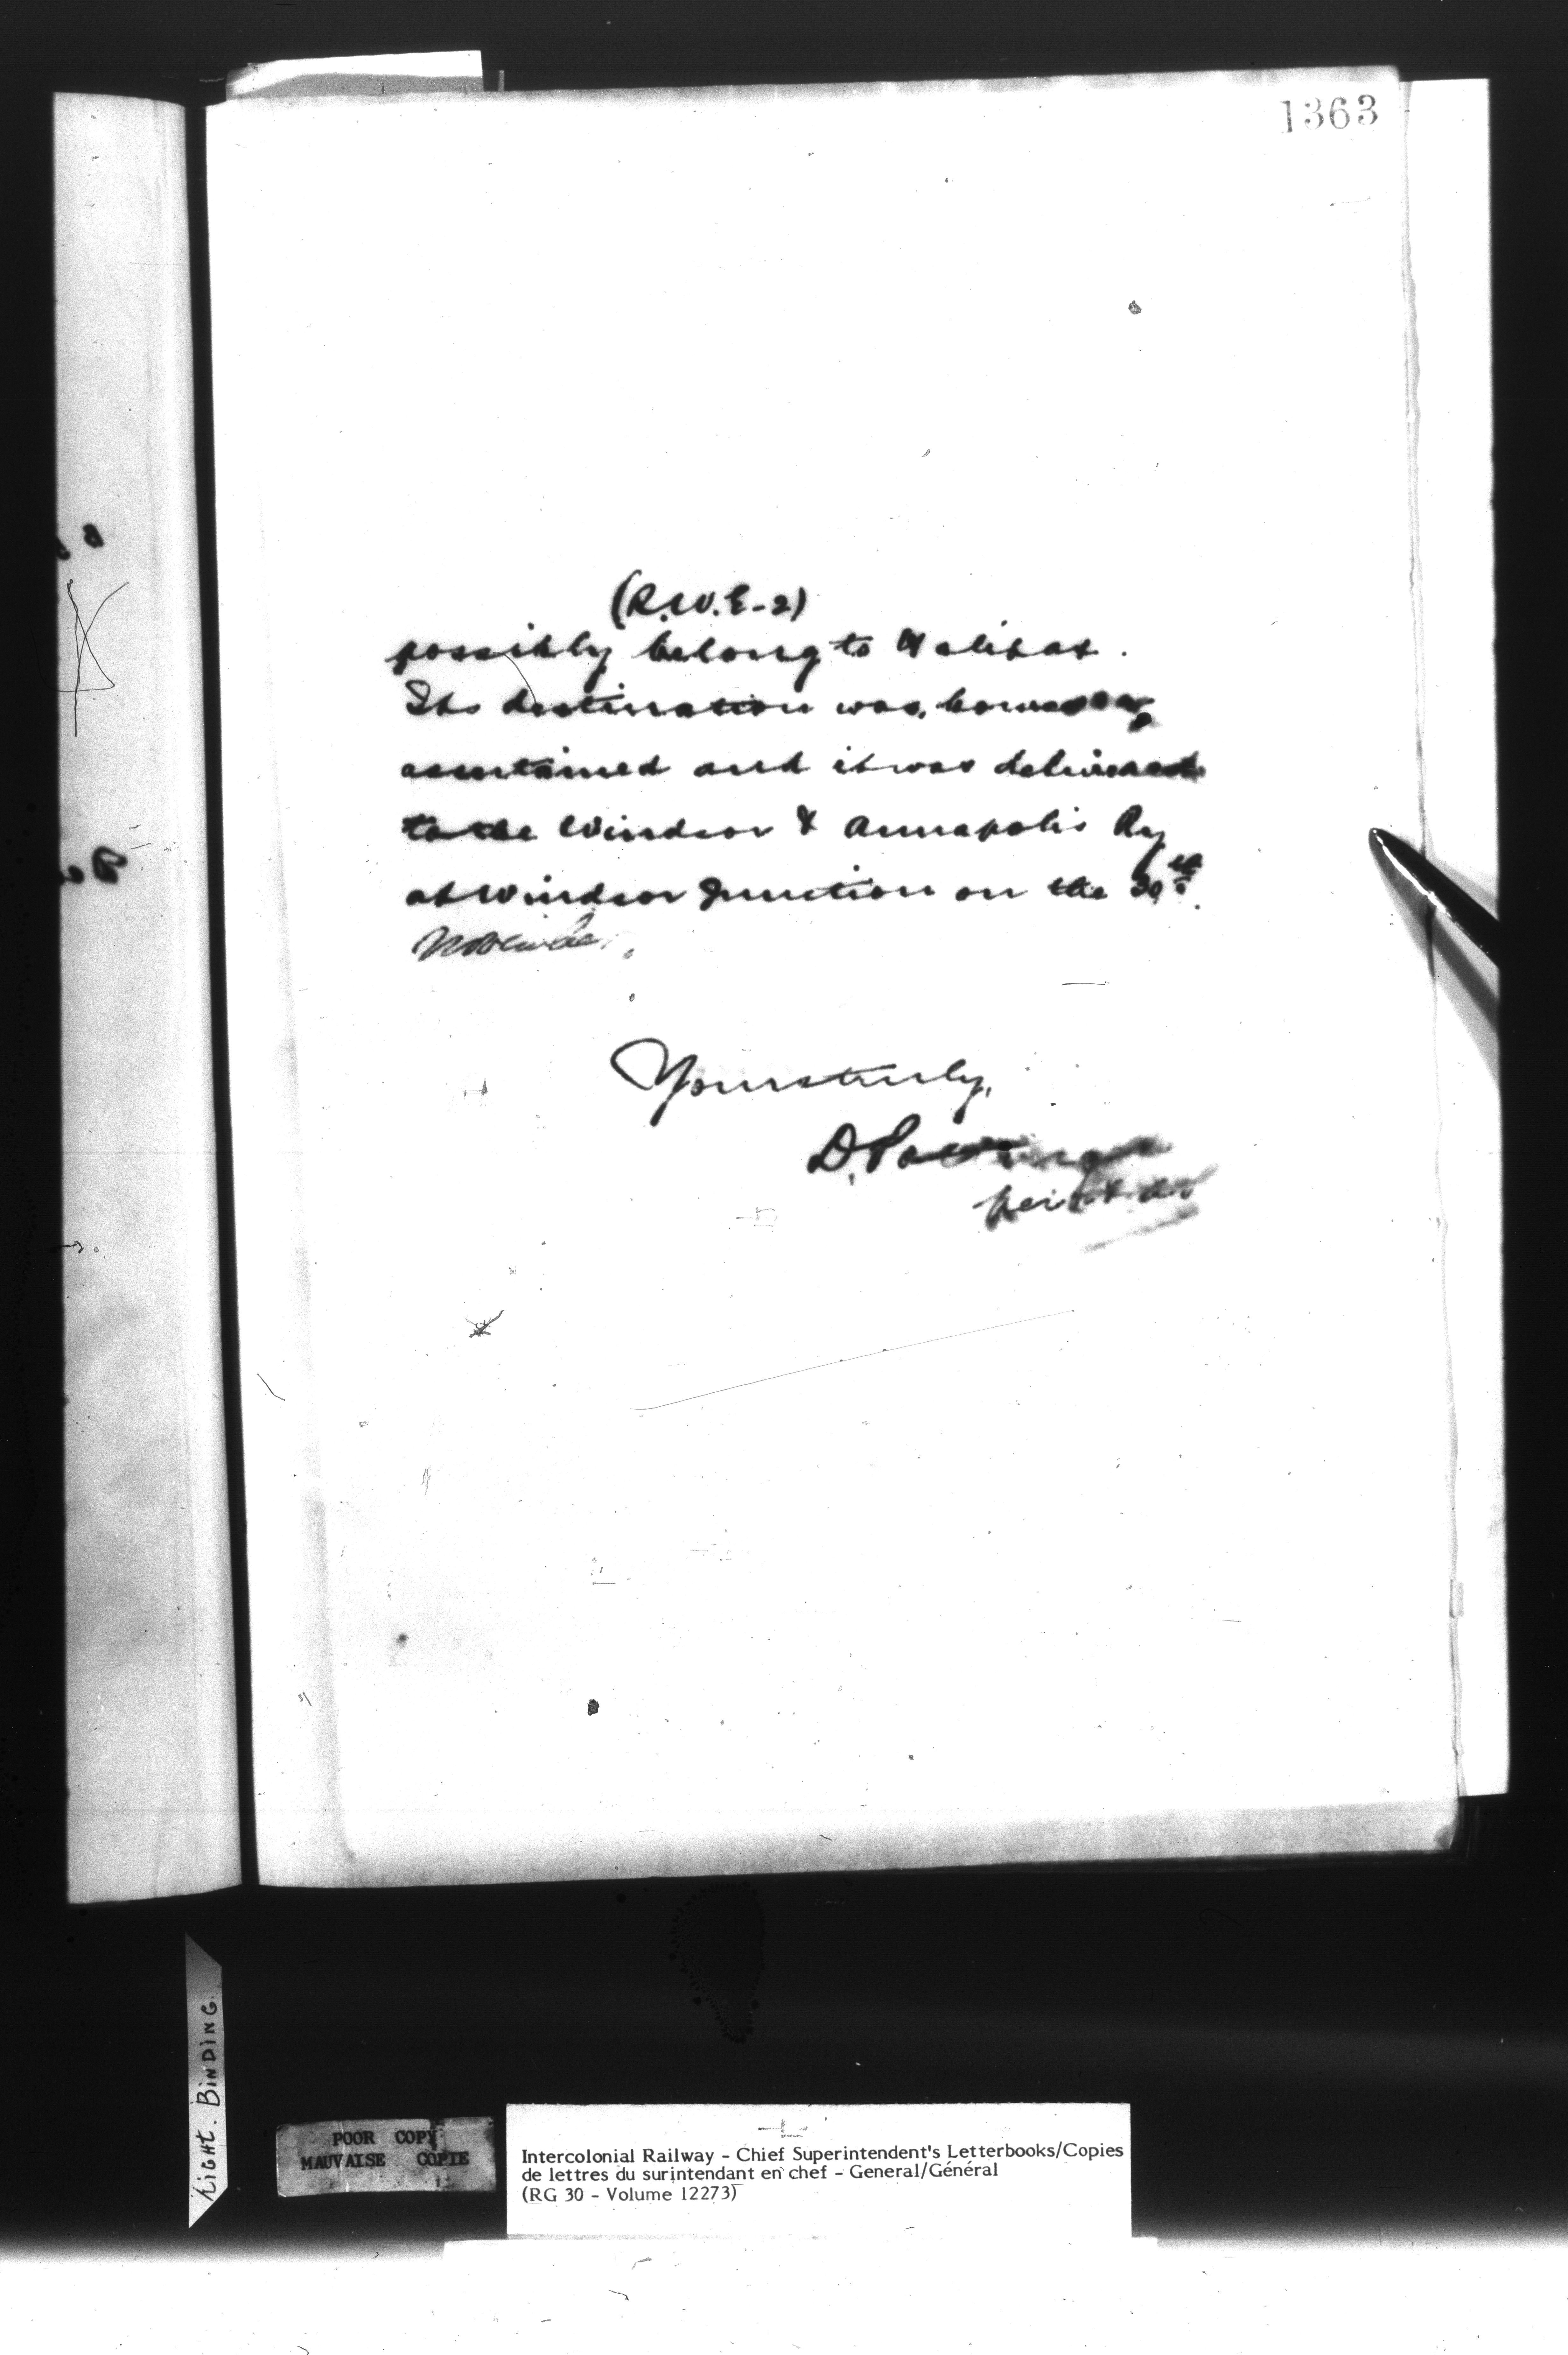 1363
(R.W.E-2)
possibly belong to Halifax.
Its destination was, however,
ascertained and it was delivered
to the Windsor & Annapolis Ry
at Windsor Junction on the 30th
November.
Yours truly,
D. Pottinger
LIGHT. BINDING.
POOR COPY
MAUVAISE COPIE
Intercolonial Railway - Chief Superintendent's Letterbooks/Copies
de lettres du surintendant en chef - General/Général
(RG 30 - Volume 12273)